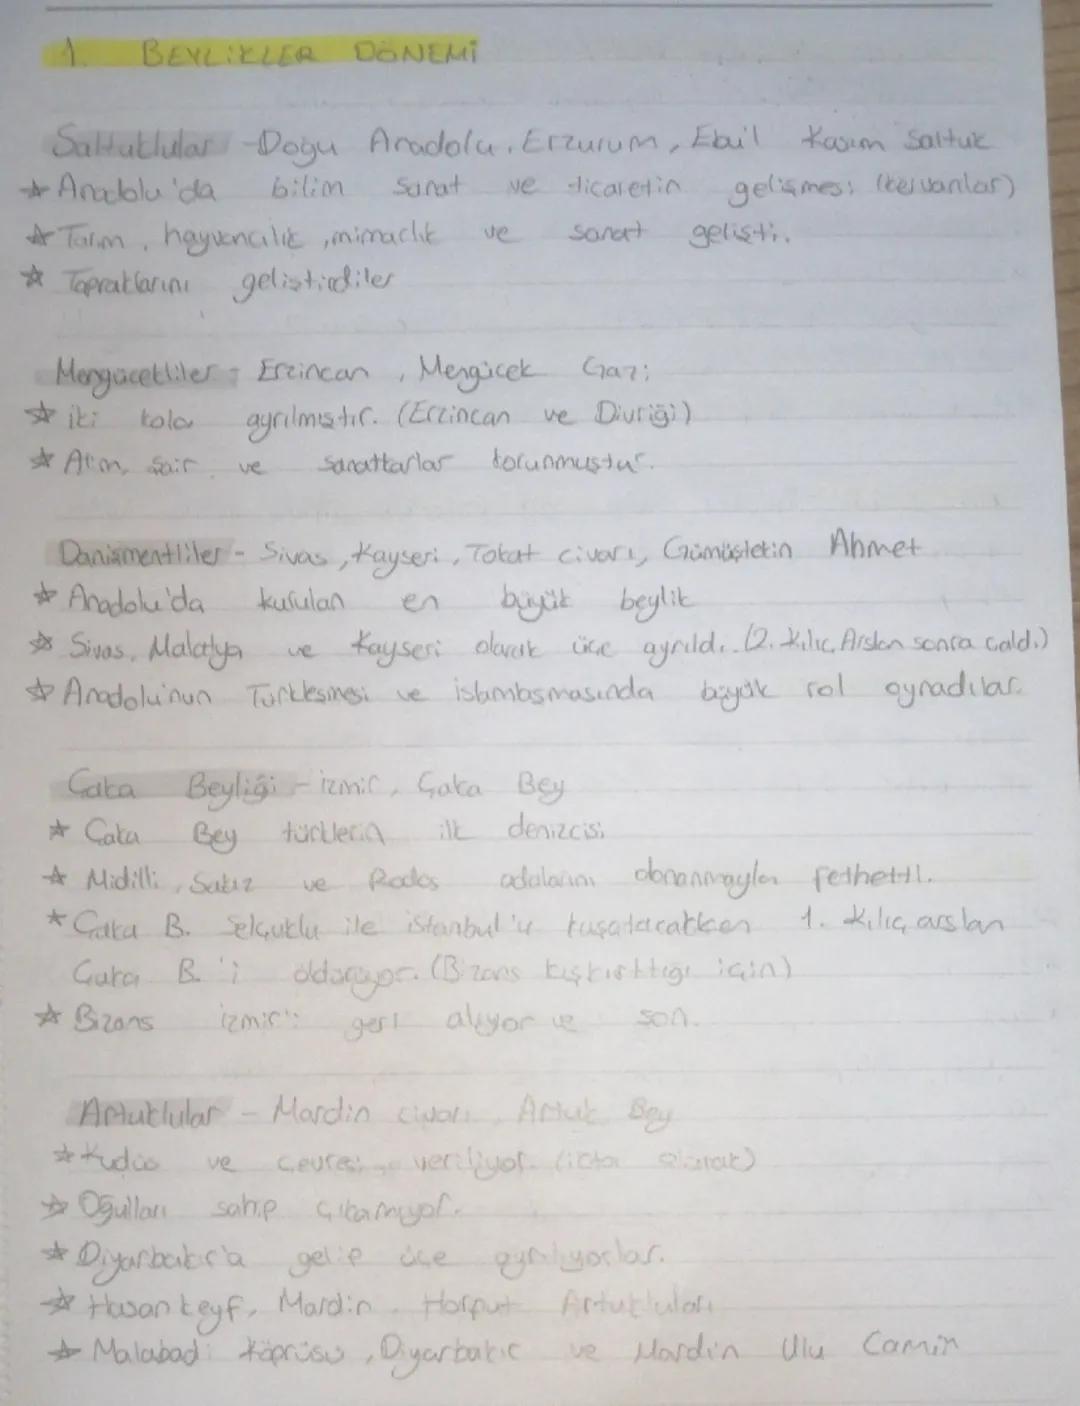 1. BEYLİKLER DÖNEMİ
Saltuklular - Doğu Anadolu, Erzurum, Ebu'l Kasım Saltuk
☆ Anadolu'da bilim sanat ve ticaretin gelişmesi (kervanlar)
☆ Tarım, hayvancılık, mimarlık ve sanat gelişti.
☆ Topraklarını geliştirdiler
Mengücekliler - Erzincan, Mengücek Gazi
☆ iki kola ayrılmıştır. (Erzincan ve Divriği)
☆ Alim, şair ve sanatkarlar korunmuştur.
Danişmentliler - Sivas, Kayseri, Tokat civarı, Gümüştekin Ahmet
☆ Anadolu'da kurulan en büyük beylik
☆ Sivas, Malatya ve Kayseri olarak üçe ayrıldı. (2. Kılıç Arslan sonra aldı.)
☆ Anadolu'nun Türkleşmesi ve islamlaşmasında büyük rol oynadılar.
Çaka Beyliği - izmir, Çaka Bey
☆ Çaka Bey türklerin ilk denizcisi
☆ Midilli, Sakız ve Rodos adalarını donanmayla fethetti.
☆ Çaka B. Selçuklu ile istanbul'u kuşatacakken 1. Kılıç arslan
Çaka B.'i öldürüyor. (Bizans kışkırttığı için)
☆ Bizans izmir'i geri alıyor ve son.
Artuklular - Mardin civarı, Artuk Bey
☆ Kudüs ve çevresi veriliyor. (ikta olarak)
☆ Oğulları sahip çıkamıyor.
☆ Diyarbakır'a gelip üçe ayrılıyorlar.
☆ Hasankeyf, Mardin, Harput Artukluları
☆ Malabadi Köprüsü, Diyarbakır ve Mardin Ulu Camin